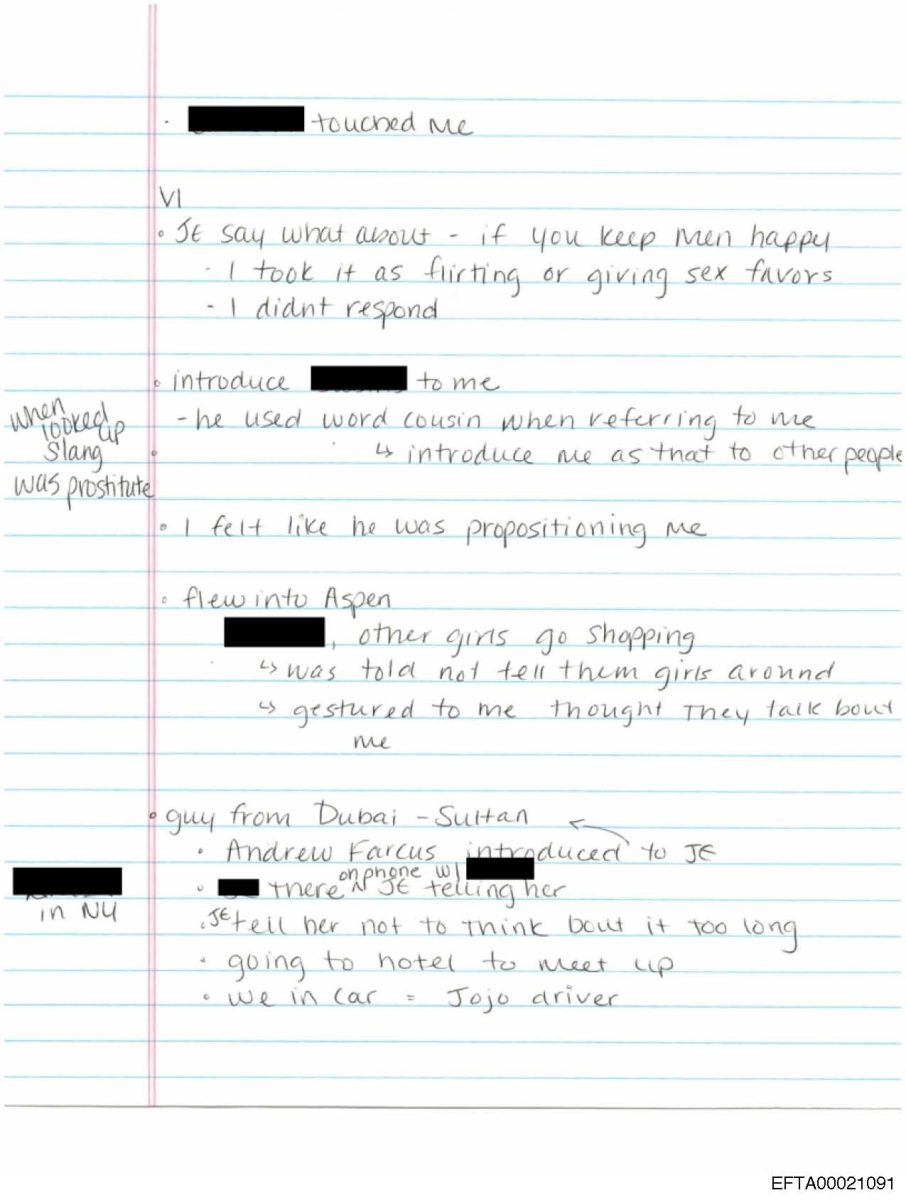 · touched me
VI
· JE say what about - if you keep men happy
- I took it as flirting or giving sex favors
- I didnt respond
· introduce to me
- he used word cousin when referring to me
↳ introduce me as that to other people
when looked up
slang
was prostitute
· I felt like he was propositioning me
· flew into Aspen
, other girls go shopping
↳ was told not tell them girls around
↳ gestured to me thought They talk bout
me
· guy from Dubai - Sultan
· Andrew Farcus introduced to JE
on phone w/
· there JE telling her
in NY
· JE tell her not to think bout it too long
· going to hotel to meet up
· we in car = Jojo driver
EFTA00021091